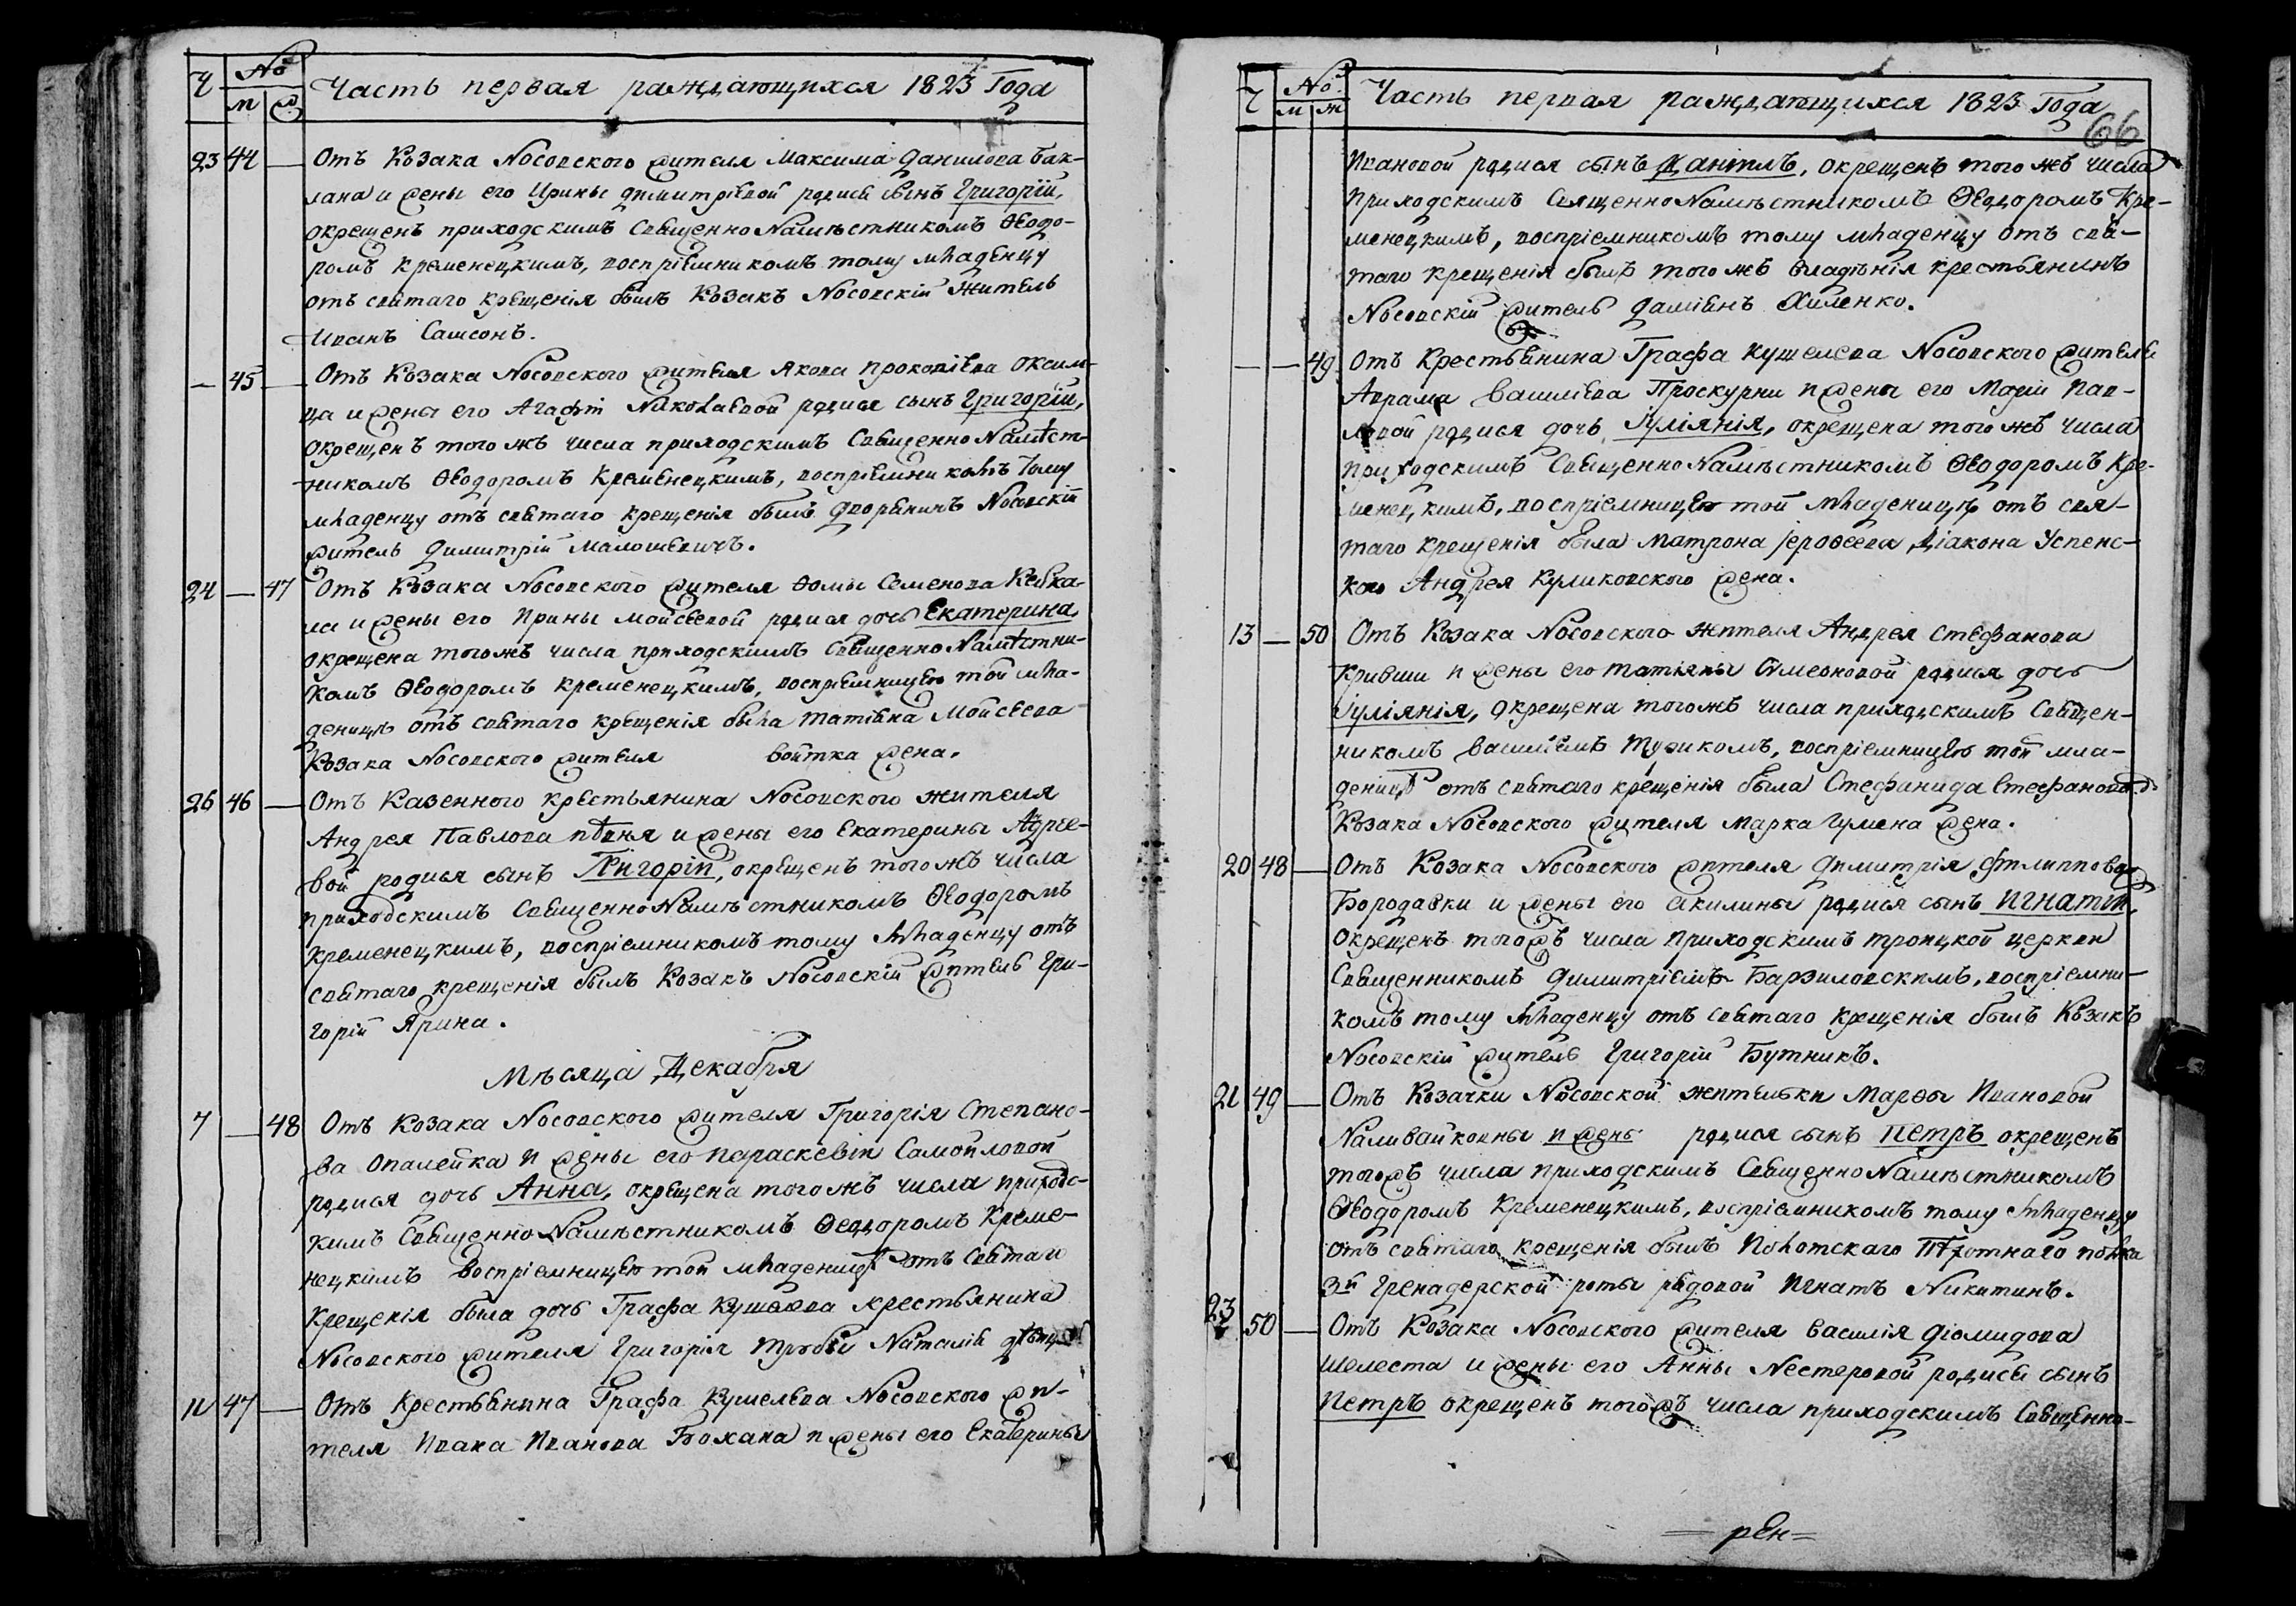 Ч № м ж Часть первая раждающихся 1823 Года
23 44 — Отъ Козака Носовского жителя Максима Данилова Бак-
лана и жены его Ирины Димитріевой родися сынъ Григорій,
окрещенъ приходскимъ СвященноНамѣстникомъ Ѳеодо-
ромъ Кременецкимъ, воспріемникомъ тому младенцу
отъ святаго крещенія былъ Козакъ Носовскій житель
Иванъ Самсонъ.
— 45 — Отъ Козака Носовского жителя Якова Прокопіева Оксим-
ца и жены его Агафіи Николаевой родися сынъ Григорій,
окрещенъ того жъ числа приходскимъ СвященноНамѣст-
никомъ Ѳеодоромъ Кременецкимъ, воспріемникомъ тому
младенцу отъ святаго крещенія былъ Дворянинъ Носовскій
житель Димитрій Малошевичъ.
24 — 47 Отъ Козака Носовского жителя Ѳомы Семенова
и жены его Ирины Мойсеевой родися дочь Екатерина,
окрещена того жъ числа приходскимъ СвященноНамѣстни-
комъ Ѳеодоромъ Кременецкимъ, воспріемницею той мла-
деницѣ отъ святаго крещенія была Татіяна Мойсеева
Козака Носовского жителя Войтка жена.
26 46 — Отъ Казенного крестьянина Носовского жителя
Андрея Павлова Пѣвня и жены его Екатерины Адрее-
вой родися сынъ Григорій, окрещенъ того жъ числа
приходскимъ СвященноНамѣстникомъ Ѳеодоромъ
Кременецкимъ, воспріемникомъ тому младенцу отъ
святаго крещенія былъ Козакъ Носовскій житель Гри-
горій Ярина.
Мѣсяца Декабря
7 — 48 Отъ Козака Носовского жителя Григорія Степано-
ва Опалейка и жены его Параскевіи Самойловой
родися дочь Анна, окрещена того жъ числа приходс-
кимъ СвященноНамѣстникомъ Ѳеодоромъ Креме-
нецкимъ воспріемницею той младеницѣ отъ святаго
крещенія была дочь Графа Кушелева крестьянина
Носовского жителя Григорія Наталія дѣвица
11 47 — Отъ Крестьянина Графа Кушелева Носовского жи-
теля Ивана Иванова Божана и жены его Екатерины
Ч № м ж Часть первая раждающихся 1823 Года
66
Ивановой родися сынъ Даніилъ, окрещенъ того жъ числа
приходскимъ СвященноНамѣстникомъ Ѳеодоромъ Кре-
менецкимъ, воспріемникомъ тому младенцу отъ свя-
таго крещенія былъ того жъ владѣнія крестьянинъ
Носовскій житель Даміянъ Хиленко.
— — 49 Отъ Крестьянина Графа Кушелева Носовского жителя
Аврама Василіева Проскурни и жены его Маріи Пав-
ловой родися дочь Іуліянія, окрещена того жъ числа
приходскимъ СвященноНамѣстникомъ Ѳеодоромъ Кре-
менецкимъ, воспріемницею той младеницѣ отъ свя-
таго крещенія была Матрона Іероѳеева Діакона Успенс-
кого Андрея Куликовского жена.
13 — 50 Отъ Козака Носовского жителя Андрея Стефанова
Кривши и жены его Татіяны Симеоновой родися дочь
Іуліянія, окрещена того жъ числа приходскимъ Священ-
никомъ Василіемъ воспріемницею той мла-
деницѣ отъ святаго крещенія была Стефанида Стефанова
Козака Носовского жителя Марка Гумена жена.
20 48 — Отъ Козака Носовского жителя Димитрія Филиппова
Бородавки и жены его Акилины родися сынъ Игнатій,
окрещенъ тогожъ числа приходскимъ Троицкой церкви
Священникомъ Димитріемъ Барзиловскимъ, воспріемни-
комъ тому младенцу отъ святаго крещенія былъ Козакъ
Носовскій житель Григорій Бутникъ.
21 49 — Отъ Козачки Носовской жительки Марѳы Ивановой
Наливайковны и жены родися сынъ Петръ окрещенъ
тогожъ числа приходскимъ СвященноНамѣстникомъ
Ѳеодоромъ Кременецкимъ, воспріемникомъ тому младенцу
отъ святаго крещенія былъ Полотскаго Пѣхотнаго полка
3й Гренадерской роты рядовой Игнатъ Никитинъ.
23 50 — Отъ Козака Носовского жителя Василія Діомидова
Шелеста и жены его Анны Нестеровой родися сынъ
Петръ окрещенъ тогожъ числа приходскимъ Священно-
= рЕн =